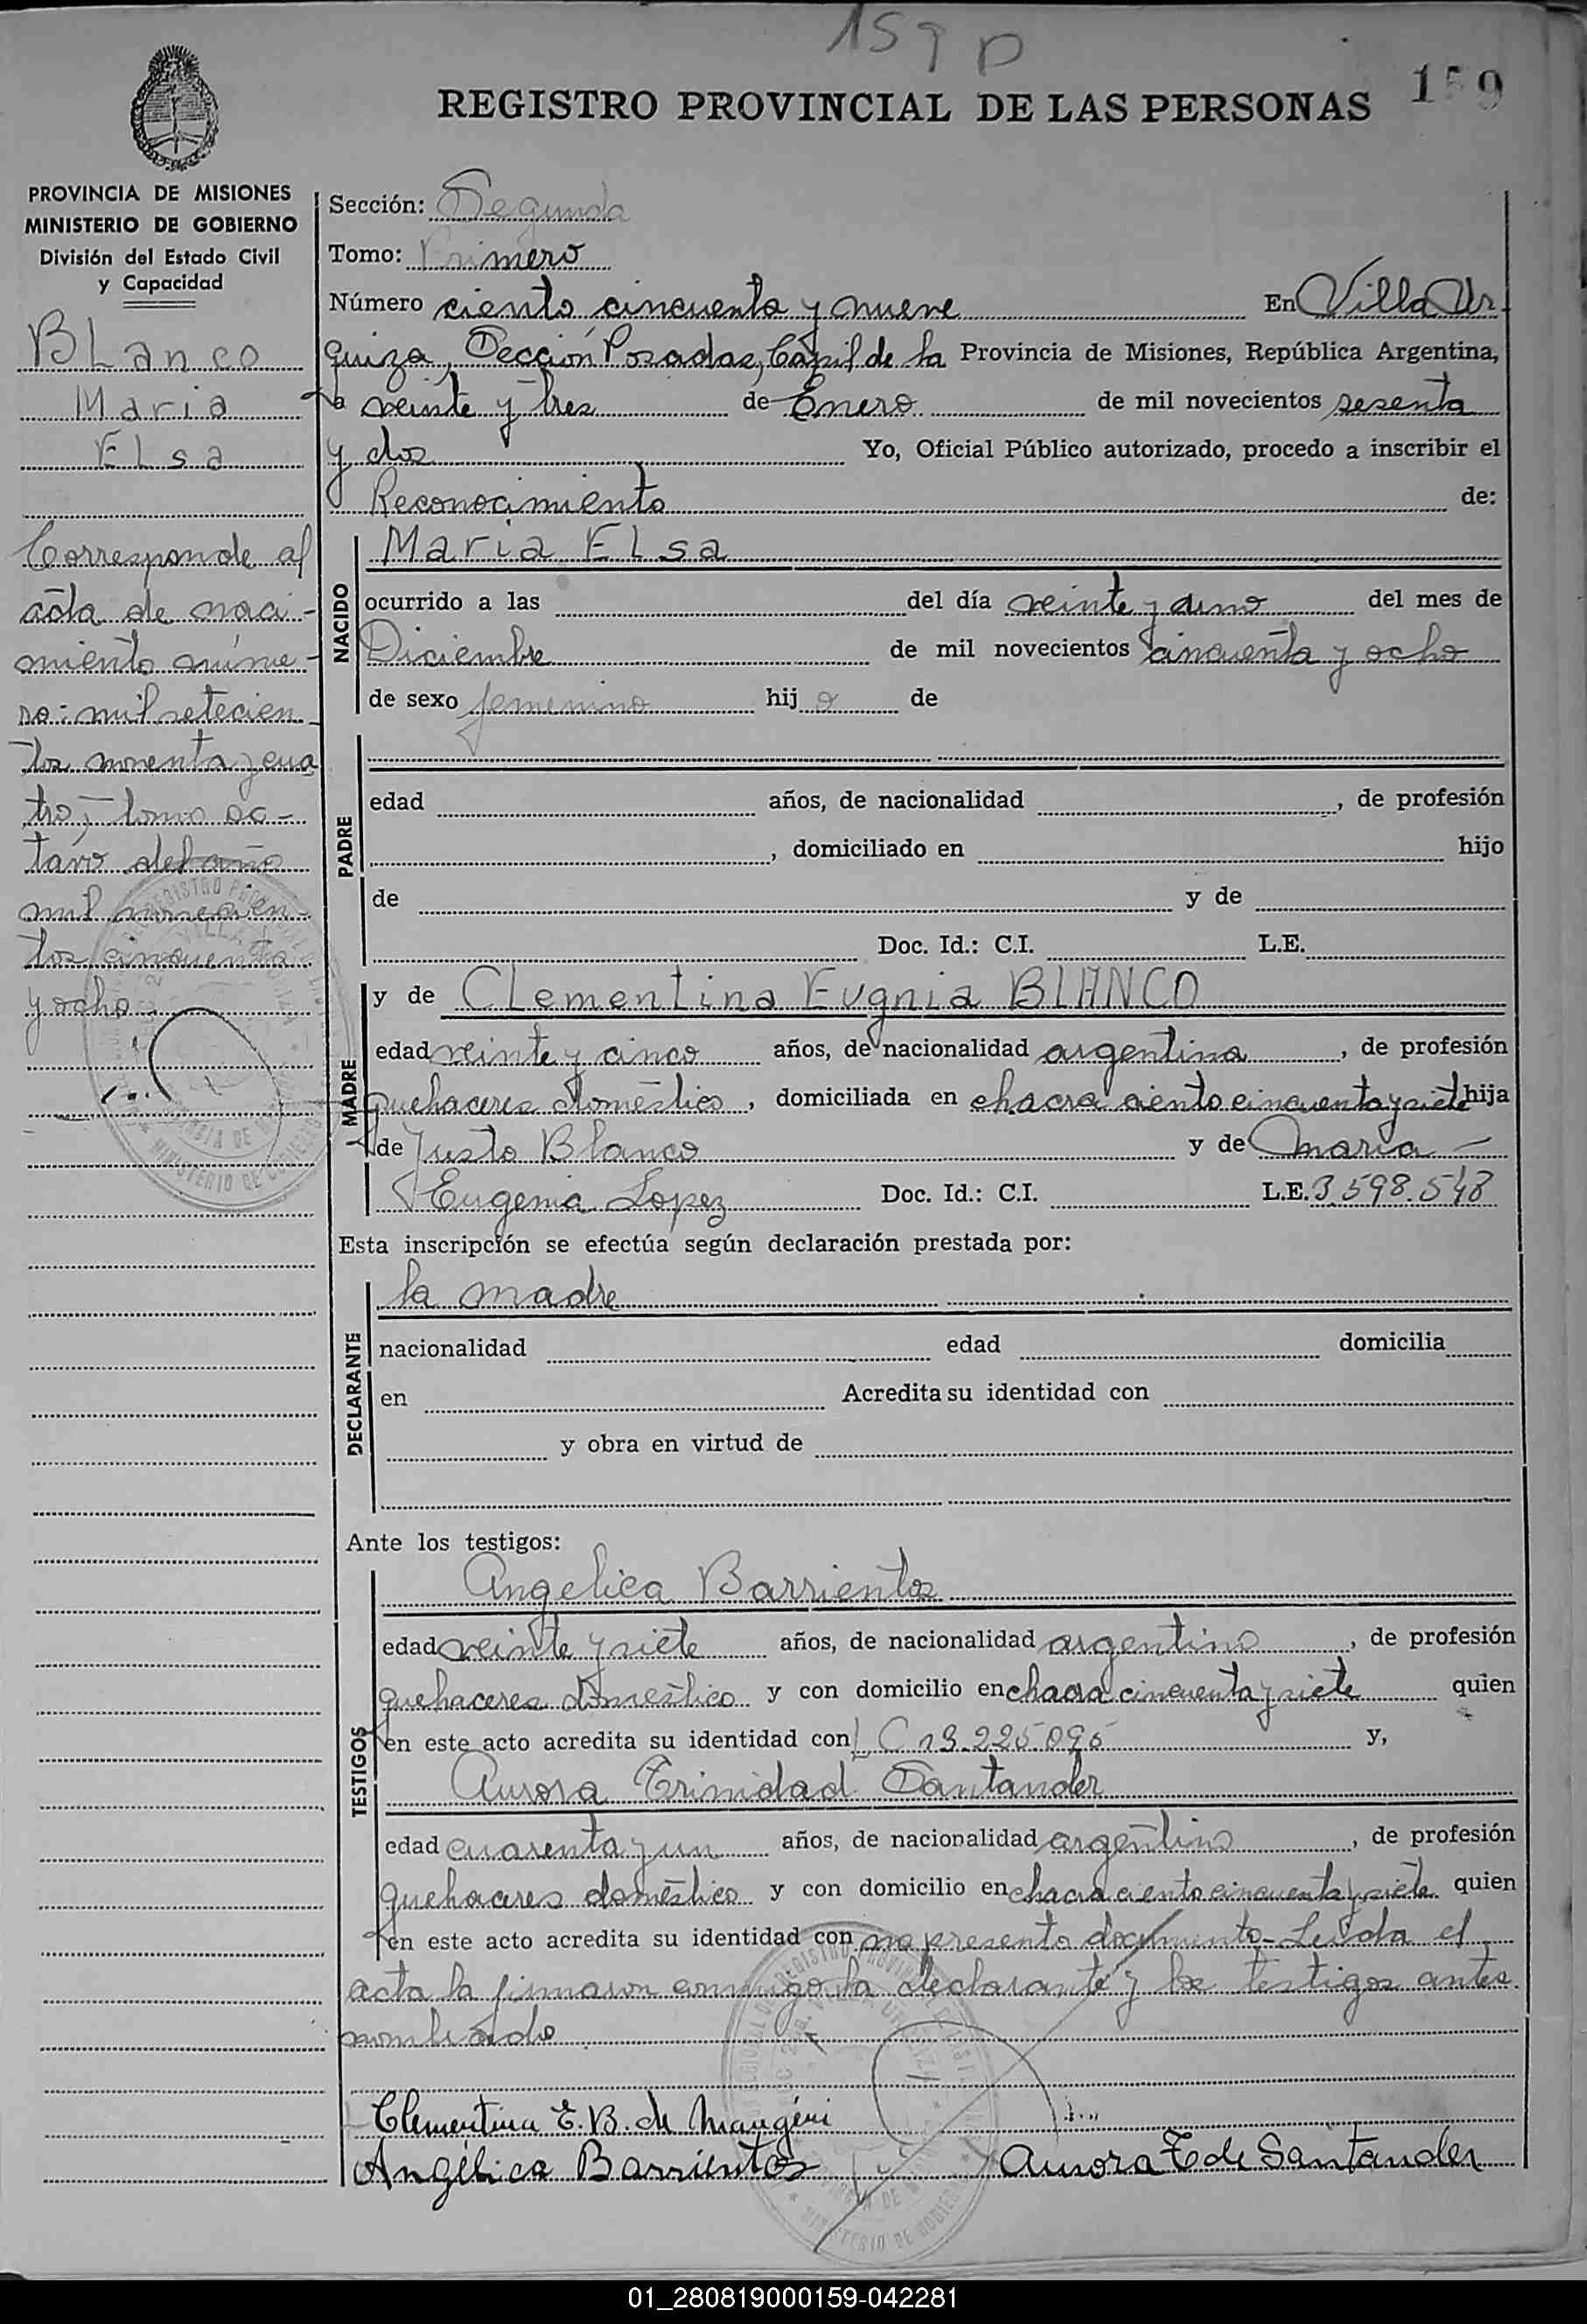 159 D
159
REGISTRO PROVINCIAL DE LAS PERSONAS
PROVINCIA DE MISIONES
MINISTERIO DE GOBIERNO
División del Estado Civil
y Capacidad
BLanco
Maria
ELsa
Corresponde al
acta de naci-
miento núme-
ro: mil setecien-
tos noventa y cua
tro, tomo oc-
tavo del año
mil novecien-
tos cincuenta
y ocho
Sección: Segunda
Tomo: Primero
Número ciento cincuenta y nueve En Villa Ur-
quiza, Sección Posadas, Capil de la Provincia de Misiones, República Argentina,
a veinte y tres de Enero de mil novecientos sesenta
y dos Yo, Oficial Público autorizado, procedo a inscribir el
Reconocimiento de:
NACIDO
Maria ELsa
ocurrido a las del día veinte y uno del mes de
Diciembre de mil novecientos cincuenta y ocho
de sexo femenino hij a de
PADRE
edad años, de nacionalidad , de profesión
, domiciliado en hijo
de y de
Doc. Id.: C.I. L.E.
MADRE
y de CLementina Eugnia BLANCO
edad veinte y cinco años, de nacionalidad argentina , de profesión
quehaceres doméstico , domiciliada en chacra ciento cincuenta y siete hija
de Justo Blanco y de Maria -
Eugenia Lopez Doc. Id.: C.I. L.E. 3.598.548
Esta inscripción se efectúa según declaración prestada por:
DECLARANTE
la madre
nacionalidad edad domicilia
en Acredita su identidad con
y obra en virtud de
Ante los testigos:
TESTIGOS
Angelica Barrientos
edad veinte y siete años, de nacionalidad argentino , de profesión
quehaceres doméstico y con domicilio en chacra cincuenta y siete quien
en este acto acredita su identidad con L C 13.225.095 y,
Aurora Trinidad Santander
edad cuarenta y un años, de nacionalidad argentino , de profesión
quehaceres doméstico y con domicilio en chacra ciento cincuenta y siete quien
en este acto acredita su identidad con no presento documento- Leída el
acta la firmaron conmigo la declarante y los testigos antes
nombrado
Clementina E. B. de Mangéni
Angélica Barrientos Aurora T de Santander
01_280819000159-042281